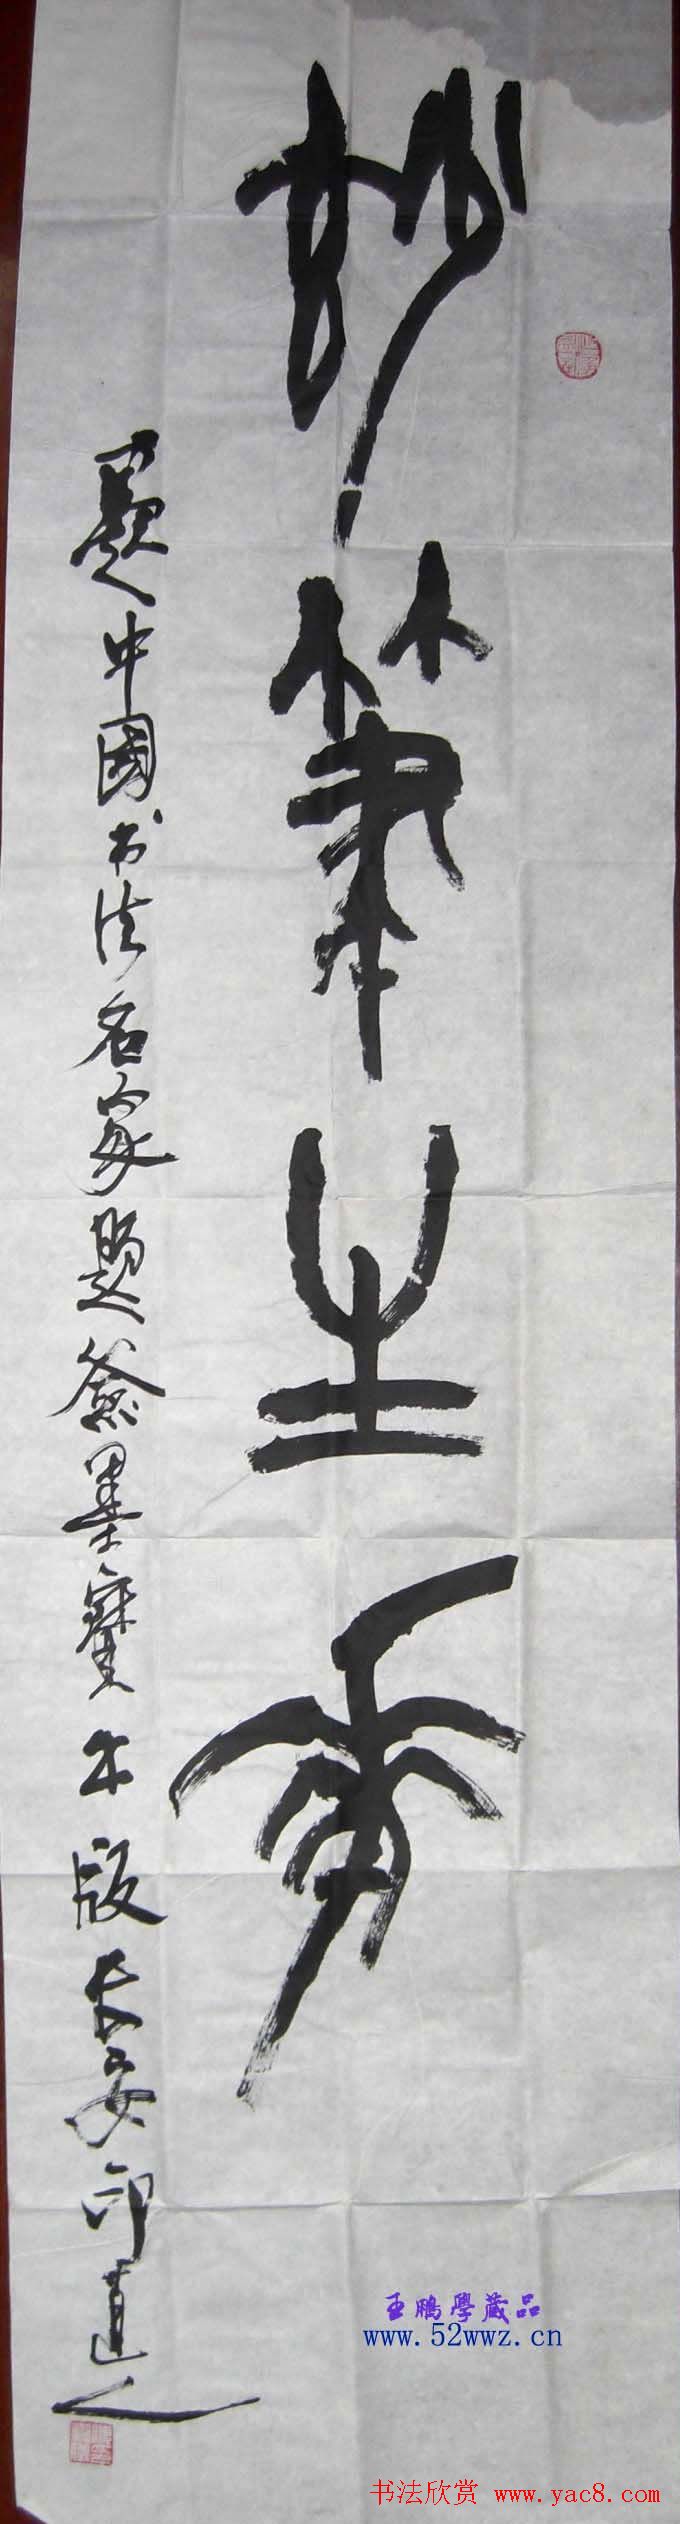 妙筆生香
題中國书法名家題簽墨寶出版長安印道人
王鵬學藏品
www.52wwz.cn
书法欣赏 www.yac8.com